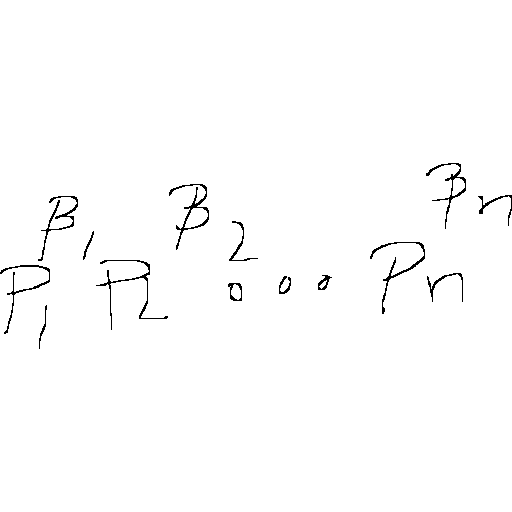 p_1^{β_1} p_2^{β_2} ... p_n^{β_n}